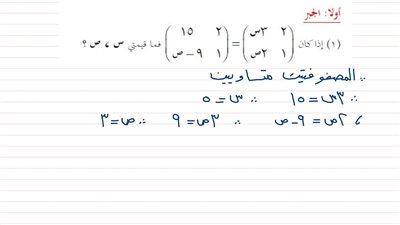 أولا: الجبر
(١) إذا كان (٢ ٣س ١ ٢ص) = (٢ ١٥ ١ ٩-ص) فما قيمتي س ، ص ؟
∵ المصفوفتين متساويتين
∴ ٣س = ١٥ ∴ س = ٥
، ٢ص = ٩-ص ∴ ٣ص = ٩ ∴ ص = ٣